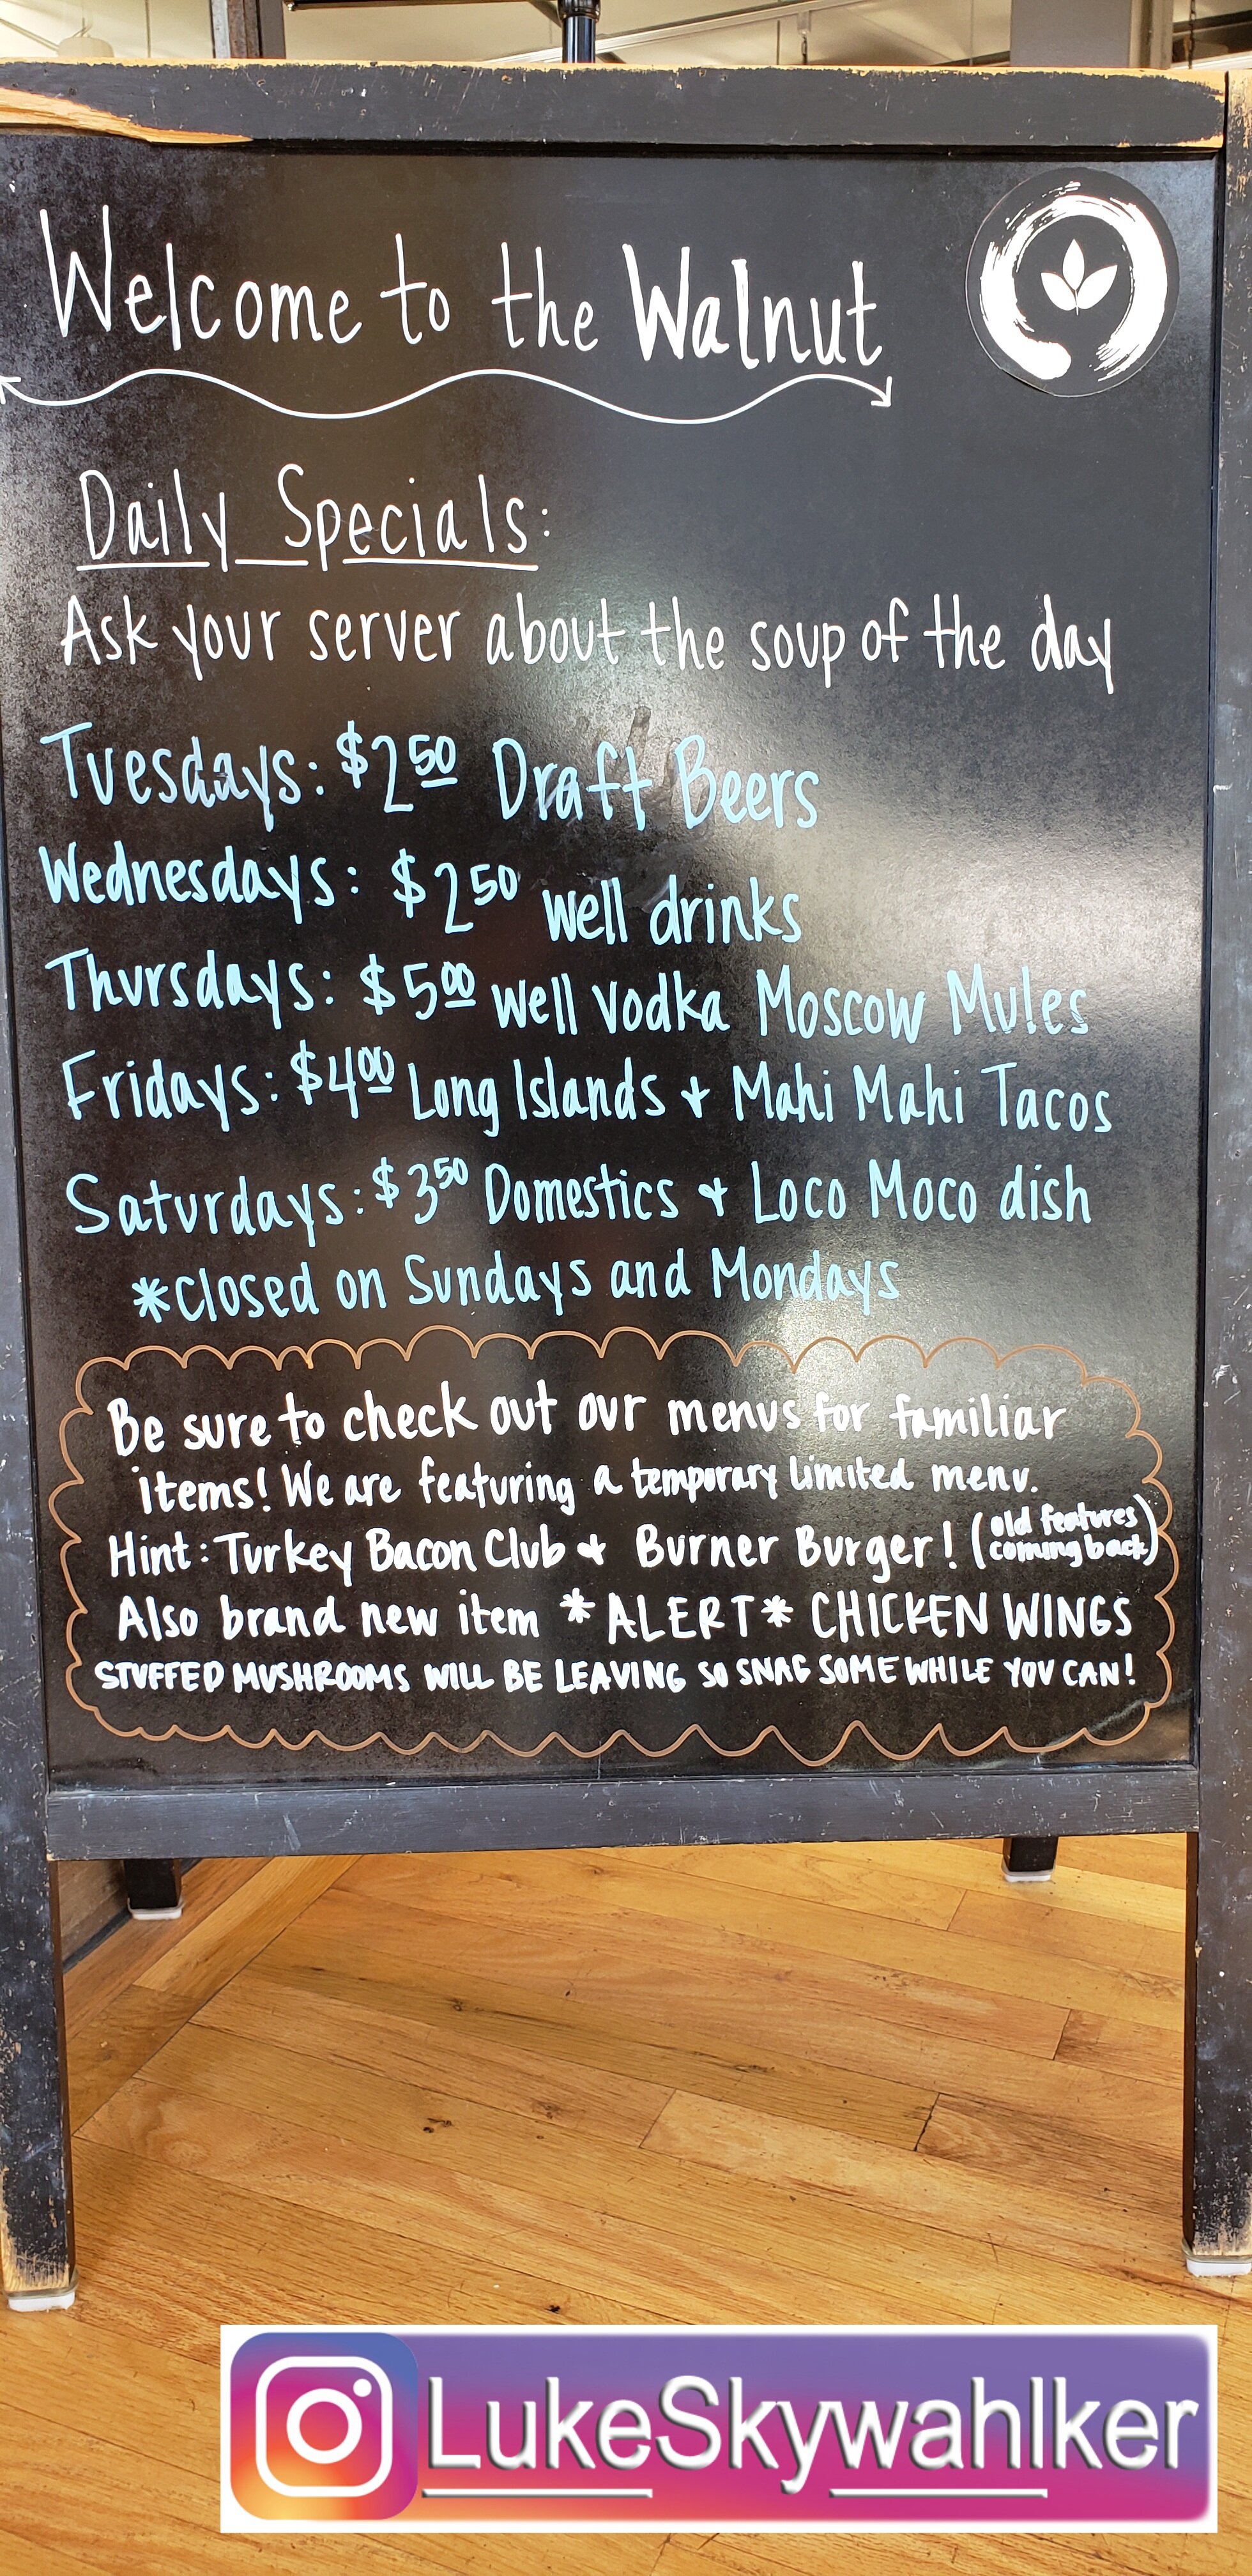 Welcome to the Walnut
Daily Specials:
Ask your server about the soup of the day
Tuesdays: $2.50 Draft Beers
Wednesdays: $2.50 well drinks
Thursdays: $5.00 well vodka Moscow Mules
Fridays: $4.00 Long Islands + Mahi Mahi Tacos
Saturdays: $3.50 Domestics + Loco Moco dish
*closed on Sundays and Mondays
Be sure to check out our menus for familiar
items! We are featuring a temporary limited menu.
Hint: Turkey Bacon Club + Burner Burger! (old features
coming back)
Also brand new item *ALERT* CHICKEN WINGS
STUFFED MUSHROOMS WILL BE LEAVING SO SNAG SOME WHILE YOU CAN!
LukeSkywahlker